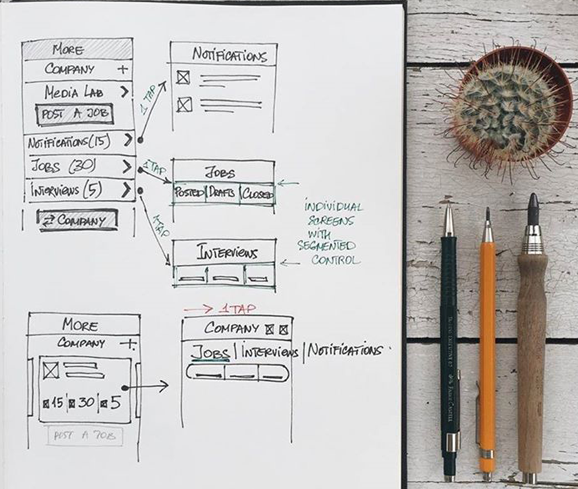 MORE
COMPANY +
MEDIA LAB >
POST A JOB
NOTIFICATIONS (15) >
JOBS (30) >
INTERVIEWS (5) >
⇄ COMPANY
1 TAP
NOTIFICATIONS
1 TAP
JOBS
POSTED | DRAFTS | CLOSED
1 TAP
INTERVIEWS
INDIVIDUAL
SCREENS
WITH
SEGMENTED
CONTROL
MORE
COMPANY +
15 | 30 | 5
POST A JOB
→ 1 TAP
COMPANY
JOBS | INTERVIEWS | NOTIFICATIONS